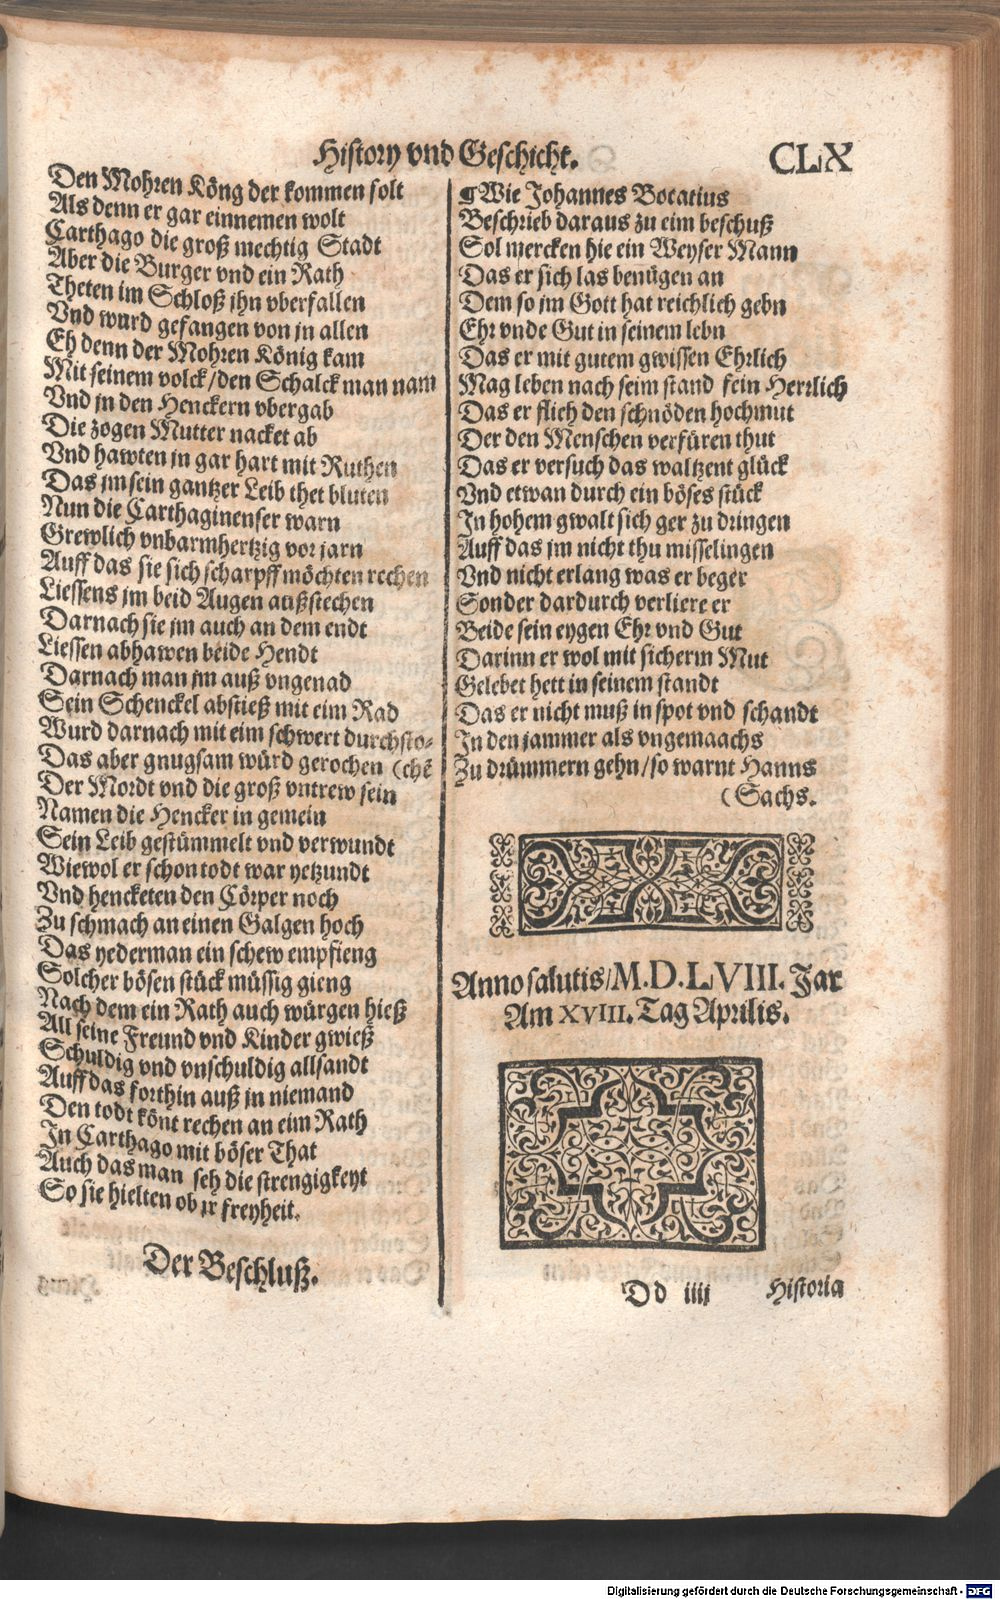 History vnd Geschicht.
CLX
Den Mohren Köng der kommen solt
Als denn er gar einnemen wolt
Carthago die groß mechtig Stadt
Aber die Burger vnd ein Rath
Theten im Schloß jhn vberfallen
Vnd wurd gefangen von jn allen
Eh denn der Mohren König kam
Mit seinem volck/den Schalck man nam
Vnd jn den Henckern vbergab
Die zogen Mutter nacket ab
Vnd hawten jn gar hart mit Ruthen
Das jm sein gantzer Leib thet bluten
Nun die Carthaginenser warn
Grewlich vnbarmhertzig vor jarn
Auff das sie sich scharpff möchten rechen
Liessens jm beid Augen außstechen
Darnach sie jm auch an dem endt
Liessen abhawen beide Hendt
Darnach man jm auß vngenad
Sein Schenckel abstieß mit eim Rad
Wurd darnach mit eim schwert durchsto-
Das aber gnugsam würd gerochen (chē
Der Mordt vnd die groß vntrew sein
Namen die Hencker in gemein
Sein Leib gestümmelt vnd verwundt
Wiewol er schon todt war yetzundt
Vnd hencketen den Cörper noch
Zu schmach an einen Galgen hoch
Das yederman ein schew empfieng
Solcher bösen stück müssig gieng
Nach dem ein Rath auch würgen hieß
All seine Freund vnd Kinder gwieß
Schuldig vnd vnschuldig allsandt
Auff das forthin auß jn niemand
Den todt könt rechen an eim Rath
In Carthago mit böser That
Auch das man seh die strengigkeyt
So sie hielten ob jr freyheit.
Der Beschluß.
¶Wie Johannes Bocatius
Beschrieb daraus zu eim beschuß
Sol mercken hie ein Weyser Mann
Das er sich las benügen an
Dem so jm Gott hat reichlich gebn
Ehr vnde Gut in seinem lebn
Das er mit gutem gwissen Ehrlich
Mag leben nach seim stand fein Herrlich
Das er flieh den schnöden hochmut
Der den Menschen verfüren thut
Das er versuch das waltzent glück
Vnd etwan durch ein böses stück
In hohem gwalt sich ger zu dringen
Auff das jm nicht thu misselingen
Vnd nicht erlang was er beger
Sonder dardurch verliere er
Beide sein eygen Ehr vnd Gut
Darinn er wol mit sicherm Mut
Gelebet hett in seinem standt
Das er nicht muß in spot vnd schandt
In den jammer als vngemaachs
Zu drümmern gehn/so warnt Hanns
(Sachs.
Anno salutis/M.D.LVIII. Jar
Am XVIII. Tag Aprilis.
Dd iiij
Historia
Digitalisierung gefördert durch die Deutsche Forschungsgemeinschaft - DFG